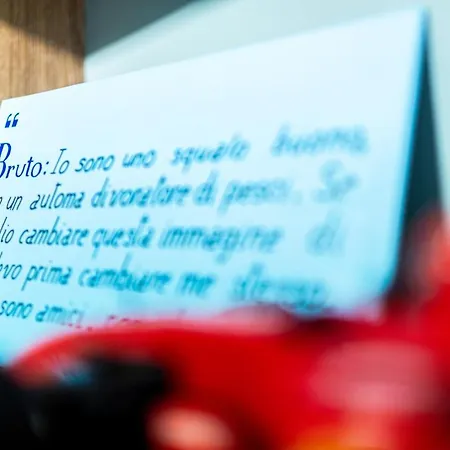 “
Bruto: Io sono uno squalo buono,
un automa divoratore di pesci. Se
cambiare questa immagine di
prima cambiare me stesso.
sono amici,